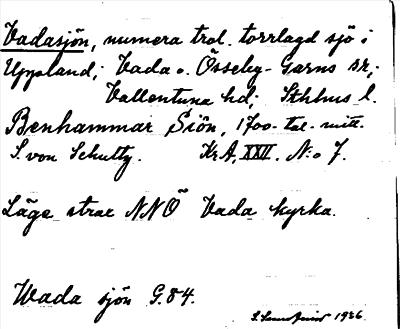 Vadasjön, numera trol. torrlagd sjö i
Uppland; Vada o. Össeby-Garns sr;
Vallentuna hd; Sthlms l.
Benhammar Siön, 1700-tal. mitt.
S. von Schultz. KrA, XXII. No 7.
Läge strax NNÖ Vada kyrka.
Wada sjön G.84.
1936.